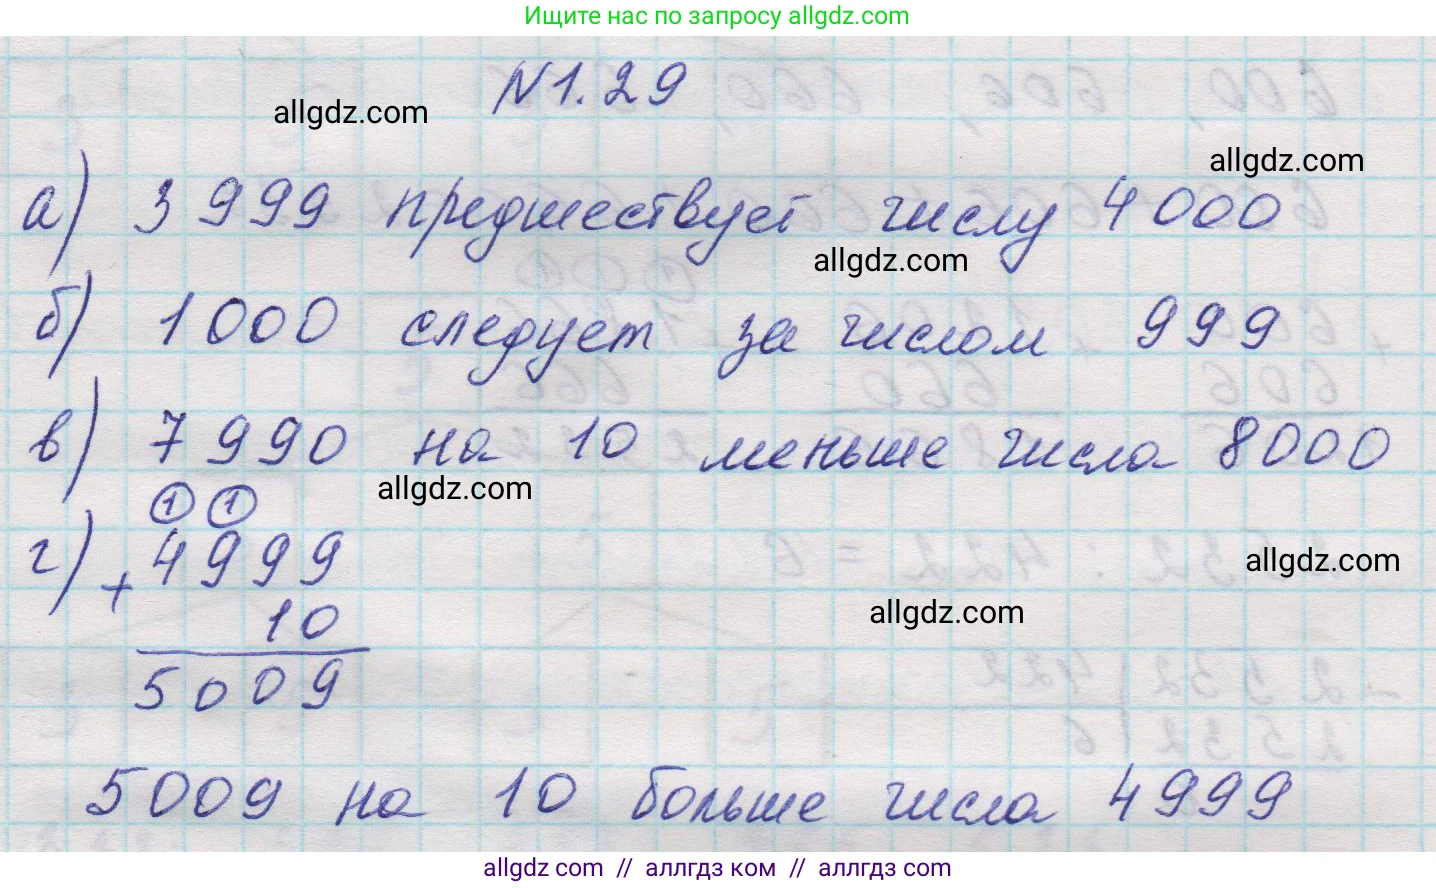 Ищите нас по запросу allgdz.com
N 1.29
allgdz.com
allgdz.com
а) 3 999 предшествует числу 4 000
allgdz.com
б) 1 000 следует за числом 999
в) 7 990 на 10 меньше числа 8 000
allgdz.com
1 1
г) + 4999
allgdz.com
10
allgdz.com
5009
5 009 на 10 больше числа 4 999
allgdz.com // аллгдз ком // аллгдз.com